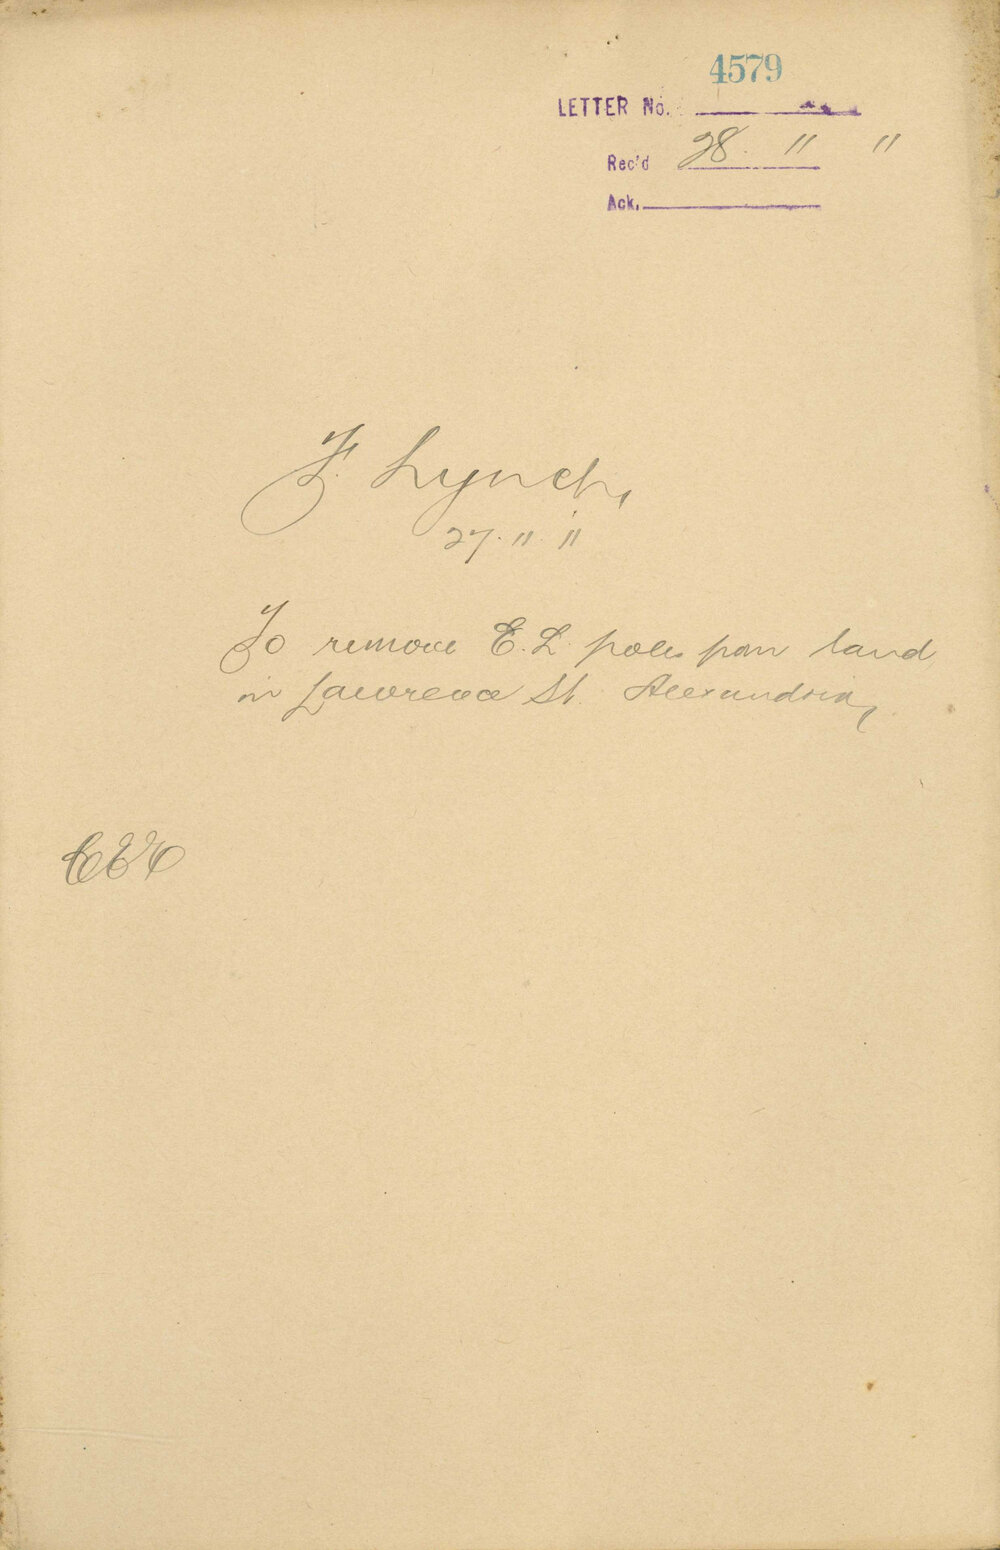 4579
LETTER No.
Rec'd 28. 11 11
Ack.
F. Lynch,
27. 11. 11
To remove E.L. poles from land
in Lawrence St. Alexandria,